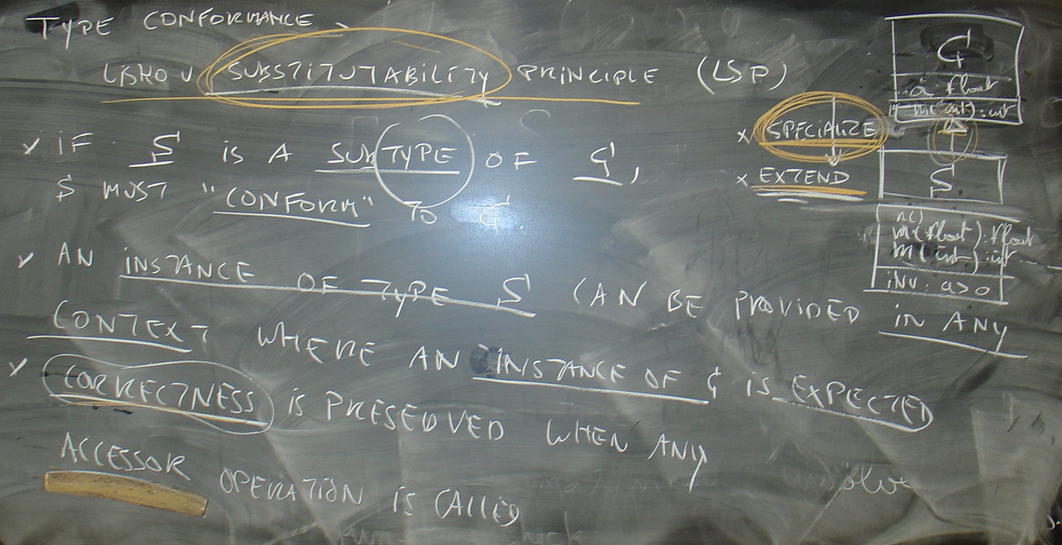 TYPE CONFORMANCE
LISKOV SUBSTITUTABILITY PRINCIPLE (LSP)
✓ IF S IS A SUBTYPE OF G,
S MUST "CONFORM" TO G
✓ AN INSTANCE OF TYPE S CAN BE PROVIDED IN ANY
CONTEXT WHERE AN INSTANCE OF G IS EXPECTED
✓ CORRECTNESS IS PRESERVED WHEN ANY
ACCESSOR OPERATION IS CALLED
x SPECIALIZE
x EXTEND
G
a: float
m(int): int
S
n()
m(float): float
m(int): int
inv: a>0
involve
check